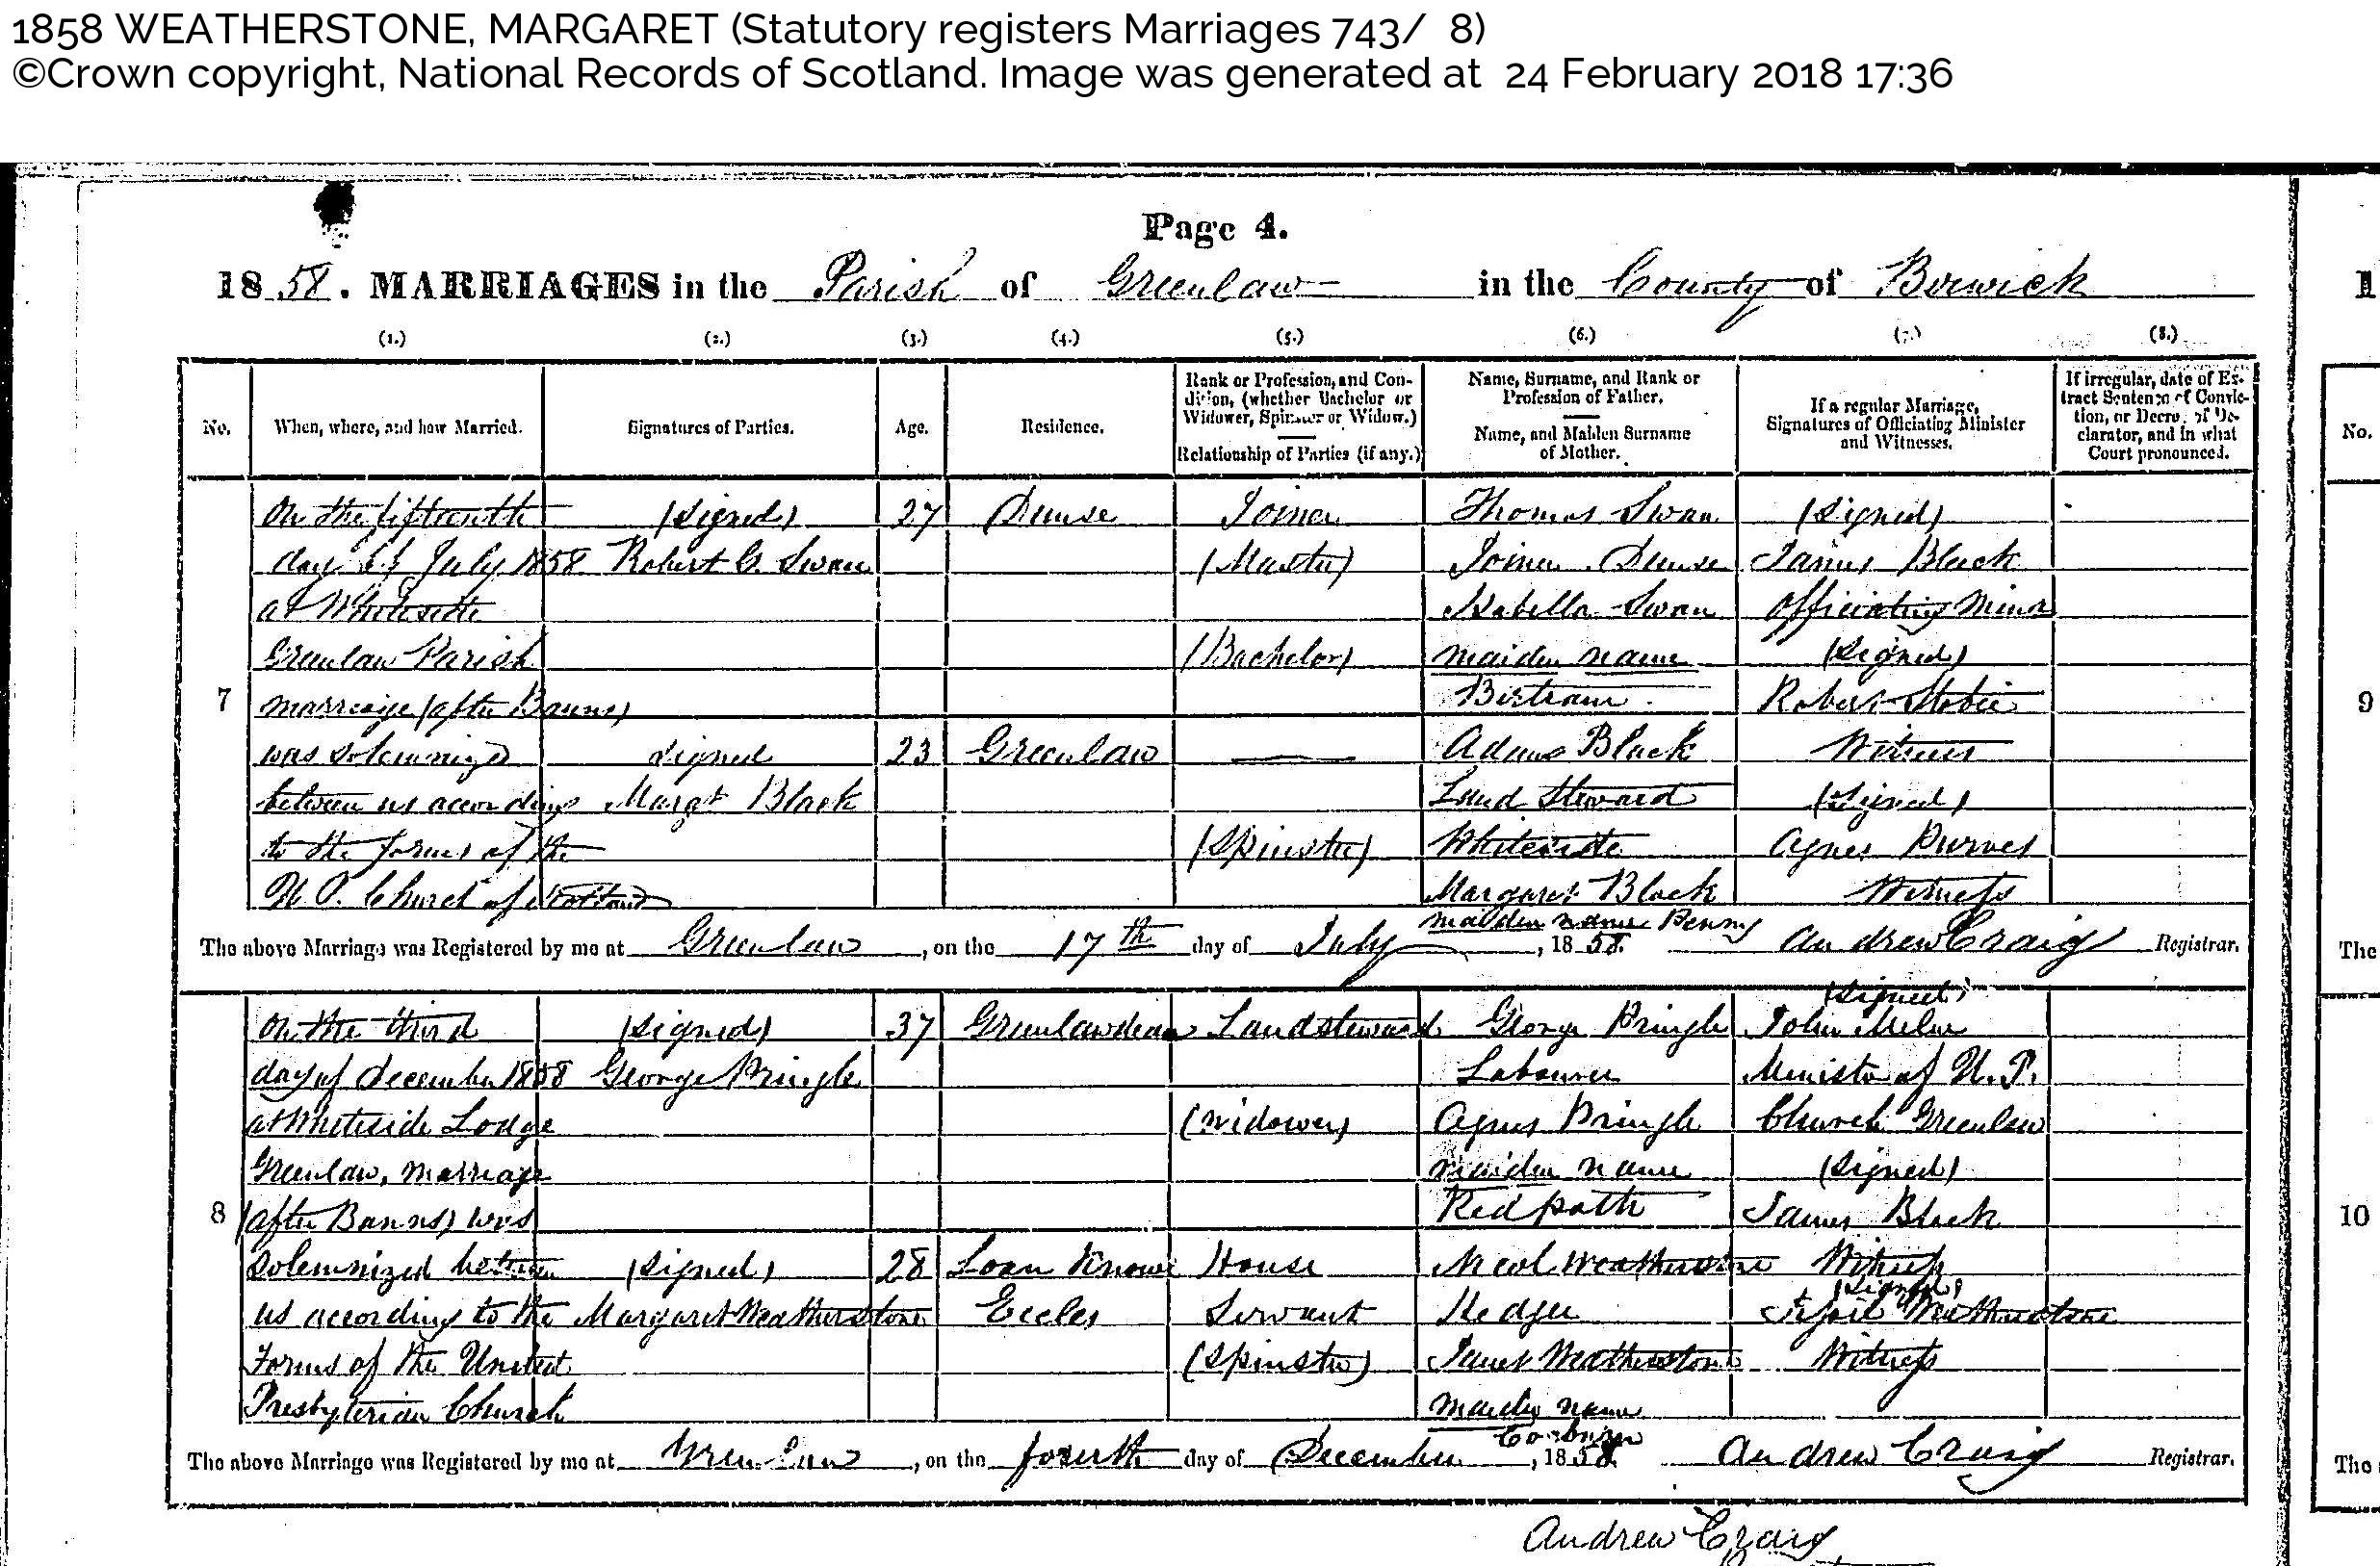 1858 WEATHERSTONE, MARGARET (Statutory registers Marriages 743/ 8)
©Crown copyright, National Records of Scotland. Image was generated at 24 February 2018 17:36
Page 4.
1858. MARRIAGES in the Parish of Greenlaw in the County of Berwick
(1.) (2.) (3.) (4.) (5.) (6.) (7.) (8.)
No.
When, where, and how Married.
Signatures of Parties.
Age.
Residence.
Rank or Profession, and Con-
dition, (whether Bachelor or
Widower, Spinster or Widow.)
Relationship of Parties (if any.)
Name, Surname, and Rank or
Profession of Father.
Name, and Maiden Surname
of Mother.
If a regular Marriage,
Signatures of Officiating Minister
and Witnesses.
If irregular, date of Ex-
tract Sentence of Convic-
tion, or Decree of De-
clarator, and in what
Court pronounced.
No.
7
On the fifteenth
day of July 1858
at Whiteside
Greenlaw Parish
marriage (after Banns)
was solemnized
between us according
to the forms of the
U. P. Church of Scotland
(signed)
Robert G. Swan
signed
Margt Black
27
23
Dunse
Greenlaw
Joiner
(Master)
(Bachelor)
(Spinster)
Thomas Swan
Joiner Dunse
Isabella Swan
maiden name
Bertram
Adam Black
Land Steward
Whiteside
Margaret Black
maiden name Penny
(Signed)
James Black
Officiating Minr
(Signed)
Robert Stobie
Witness
(Signed)
Agnes Purves
Witness
The above Marriage was Registered by me at Greenlaw, on the 17th day of July, 1858. Andrew Craig Registrar.
8
On the third
day of December 1858
at Whiteside Lodge
Greenlaw, marriage
(after Banns) was
Solemnized between
us according to the
Forms of the United
Presbyterian Church
(signed)
George Pringle
(signed)
Margaret Weatherstone
37
28
Greenlawdean
Loan Knowe
Eccles
Landsteward
(Widower)
House
Servant
(Spinster)
George Pringle
Labourer
Agnes Pringle
maiden name
Redpath
Nicol Weatherstone
Hedger
Janet Weatherstone
maiden name
(Signed)
John Milne
Minister of U. P.
Church Greenlaw
(Signed)
James Black
Witness
(Signed)
Weatherstone
Witness
The above Marriage was Registered by me at Greenlaw, on the fourth day of December, 1858. Andrew Craig Registrar.
Andrew Craig
1
No.
9
The
10
The